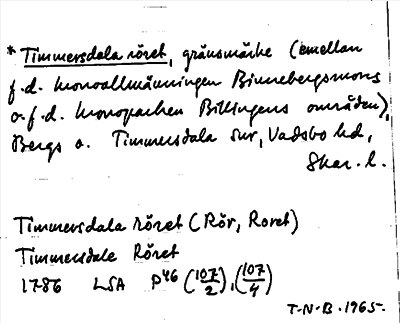 * Timmersdala röret, gränsmärke (emellan
f.d. kronoallmänningen Binnebergsmons
o.f.d. kronoparken Billingens områden),
Bergs o. Timmersdala snr, Vadsbo hd,
Skar. l.
Timmersdala röret (Rör, Roret)
Timmersdale Röret
1786 LSA P46 (107/2), (107/4)
T-N-B. 1965.